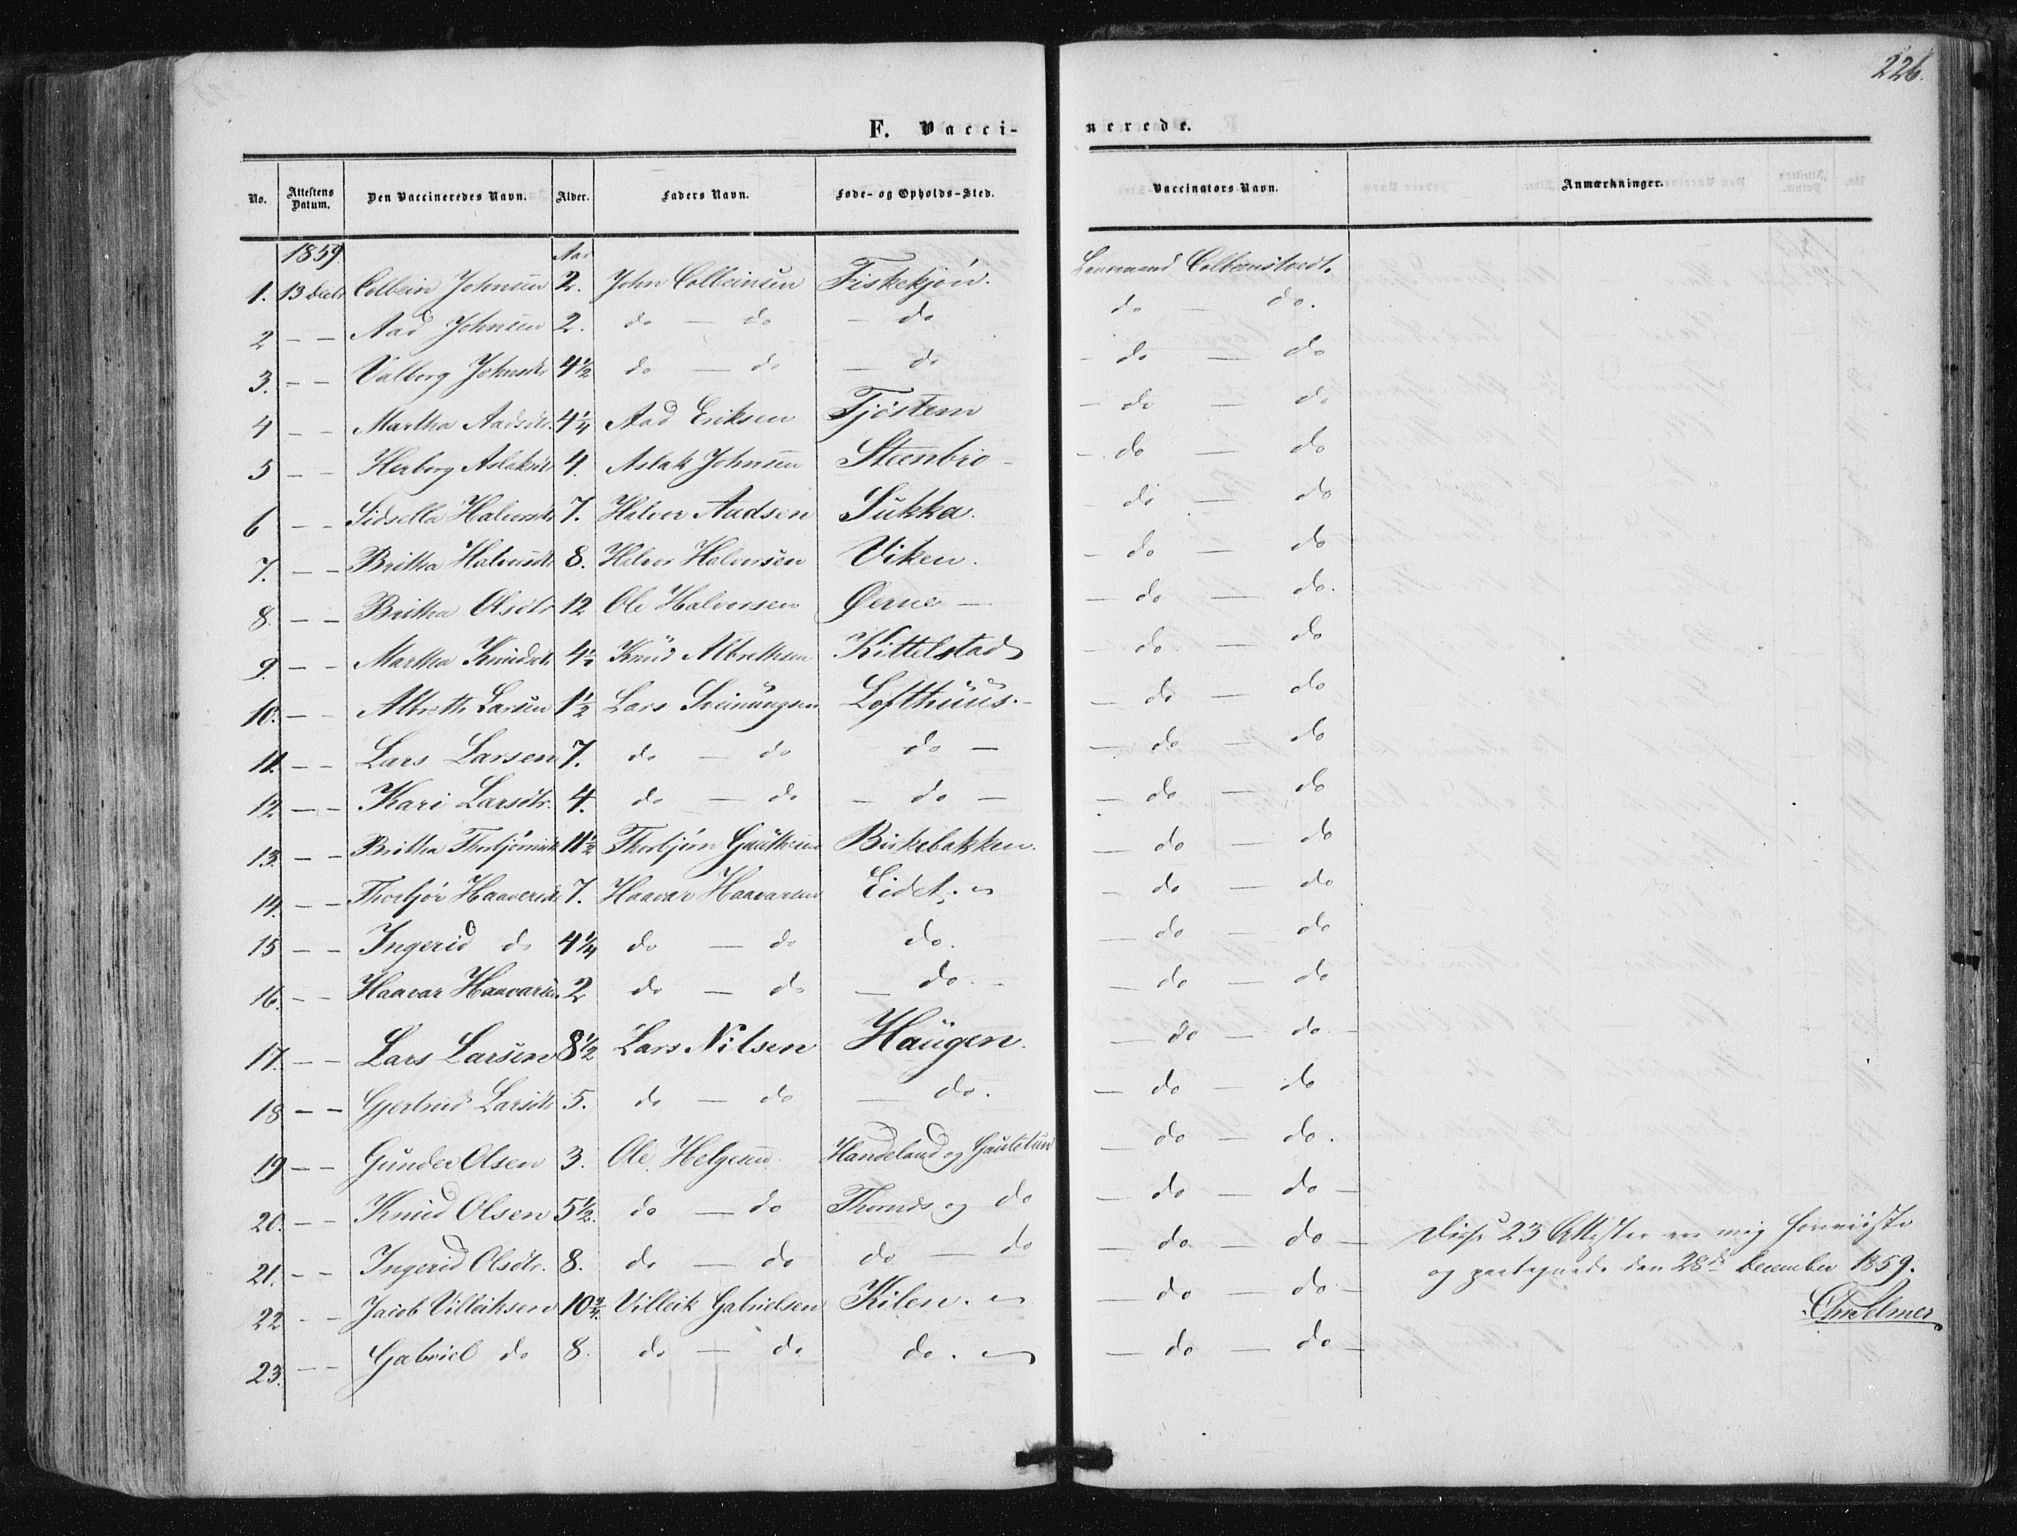 226.
F. Vacci-
nerede.
No. Attestens Datum. Den Vaccineredes Navn. Alder. Faders Navn. Føde- og Opholds-Sted. Vaccinators Navn. Anmærkninger.
1859. Aar
1. 13 Decbr Colbein Johnsen 2. John Colbeinsen Fiskekjøn. Colbenstvedt.
2 - - Aad Johnsen 2. do - do - do do do.
3. - - Valborg Johnsdr 4 1/2 do - do - do - do - do
4 - - Martha Aadsdtr. 4 1/4 Aad Eriksen Tjøstem - do - do
5 - - Herborg Aslaksdt 4. Aslak Johnsen Steenbro - - do - do
6 - - Sidsella Halvorsdtr 7. Halvor Aadsen Sukka. - do - do
7. - - Britha Halvorsdtr 8. Halvor Halvorsen Viken. - do - do
8. - - Britha Olsdtr 12 Ole Halvorsen Øerne - - do - do.
9. - - Martha Knudsdt. 4 1/2 Knud Albrethsen Kittelstad - do - do
10. - - Albreth Larsen 1 1/2 Lars Sveinungsen Lofthuus. - - do - do
11. - - Lars Larsen 7. do - do do - - do - do
12 - - Kari Larsdtr. 4. do - do - do - - do - do
13. - - Britha Thorbjørnsdt 11 1/2 Thorbjørn Gautesen Birkebakken. - do - do
14. - - Thorbjør Haaversdt 7. Haavar Haavarsen Eidet. - do - do
15 - - Ingerid do 4 1/4 do - do do. - do - do
16. - - Haavar Haavarsen 2 do - do - do. - - do - do
17. - - Lars Larsen 8 1/2 Lars Nilsen Haugen. - do - do -
18 - - Gjertrud Larsdtr 5. do - do - do. - do - do
19 - - Gunder Olsen 3. Ole Helgesen Handeland og Gautetun - do - do.
20. - - Knud Olsen 5 1/2. do - do og do - do - do -
21. - - Ingerid Olsdtr. 8. do - do do - do - do - do -
22 - - Jacob Villeiksen 10 3/4. Villeik Gabrielsen Kilen. - do - do -
23. - - Gabriel do 8. do - do do. - do - do -
Disse 23 Attester ere mig foreviiste
og paategnede den 28de December 1859.
Chr Selmer